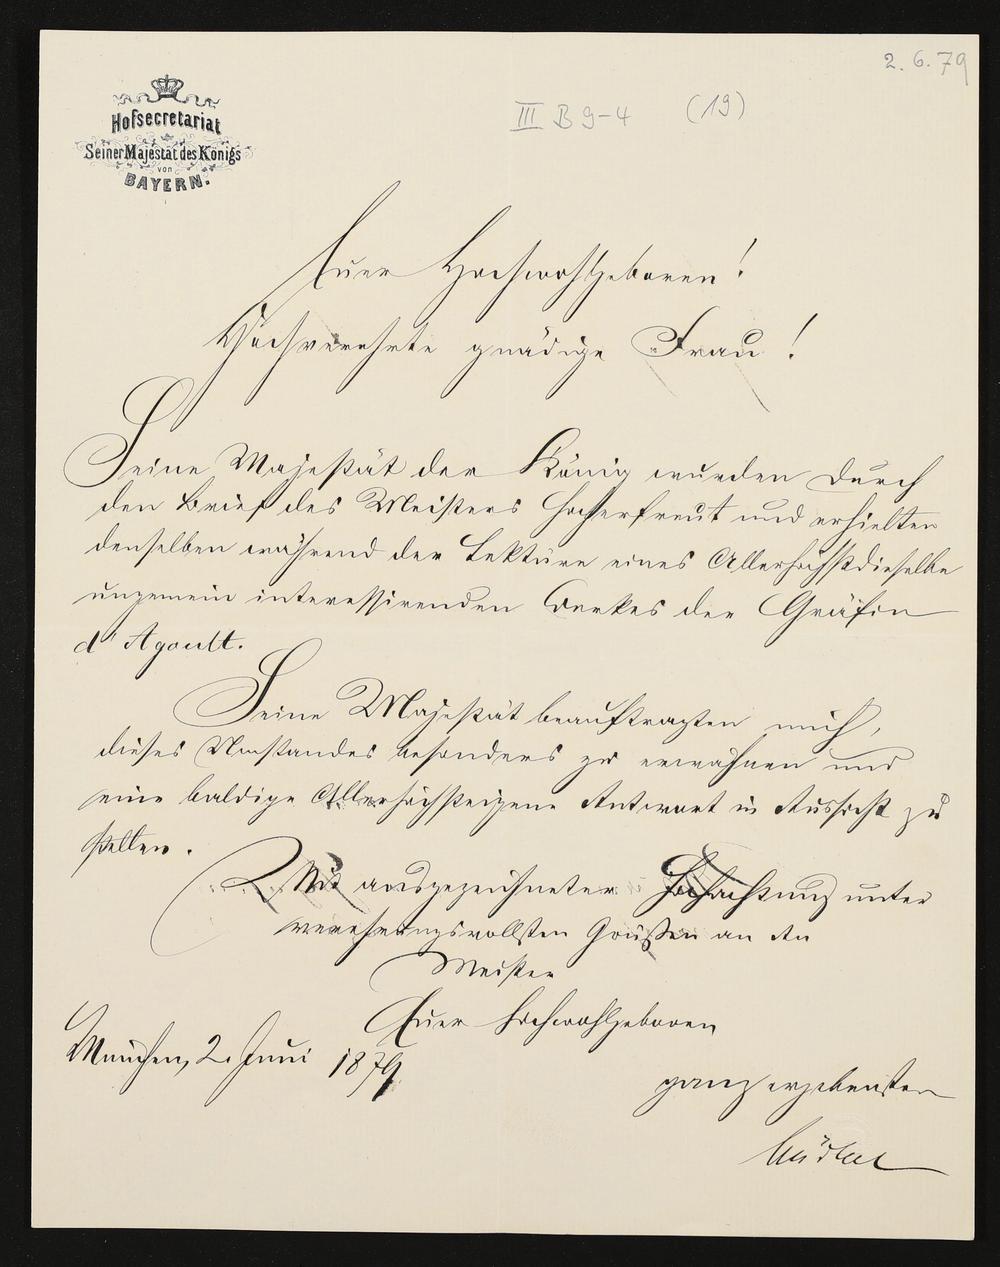 2. 6. 79
III B 9-4 (19)
Hofsecretariat
Seiner Majestät des Königs
von
BAYERN.
Euer Hochwohlgeboren!
Hochverehrte gnädige Frau!
Seine Majestät der König wurden durch
den Brief des Meisters hocherfreut und erhielten
denselben während der Lektüre eines Allerhöchstdieselbe
ungemein interessirenden Werkes der Gräfin
d'Agoult.
Seine Majestät beauftragten mich,
dieses Umstandes besonders zu erwähnen und
eine baldige Allerhöchsteigene Antwort in Aussicht zu
stellen.
Mit ausgezeichneter Hochachtung unter
verehrungsvollsten Grüßen an den
Meister
Euer Hochwohlgeboren
München, 2. Juni 1879
ganz ergebenster
Bürkel